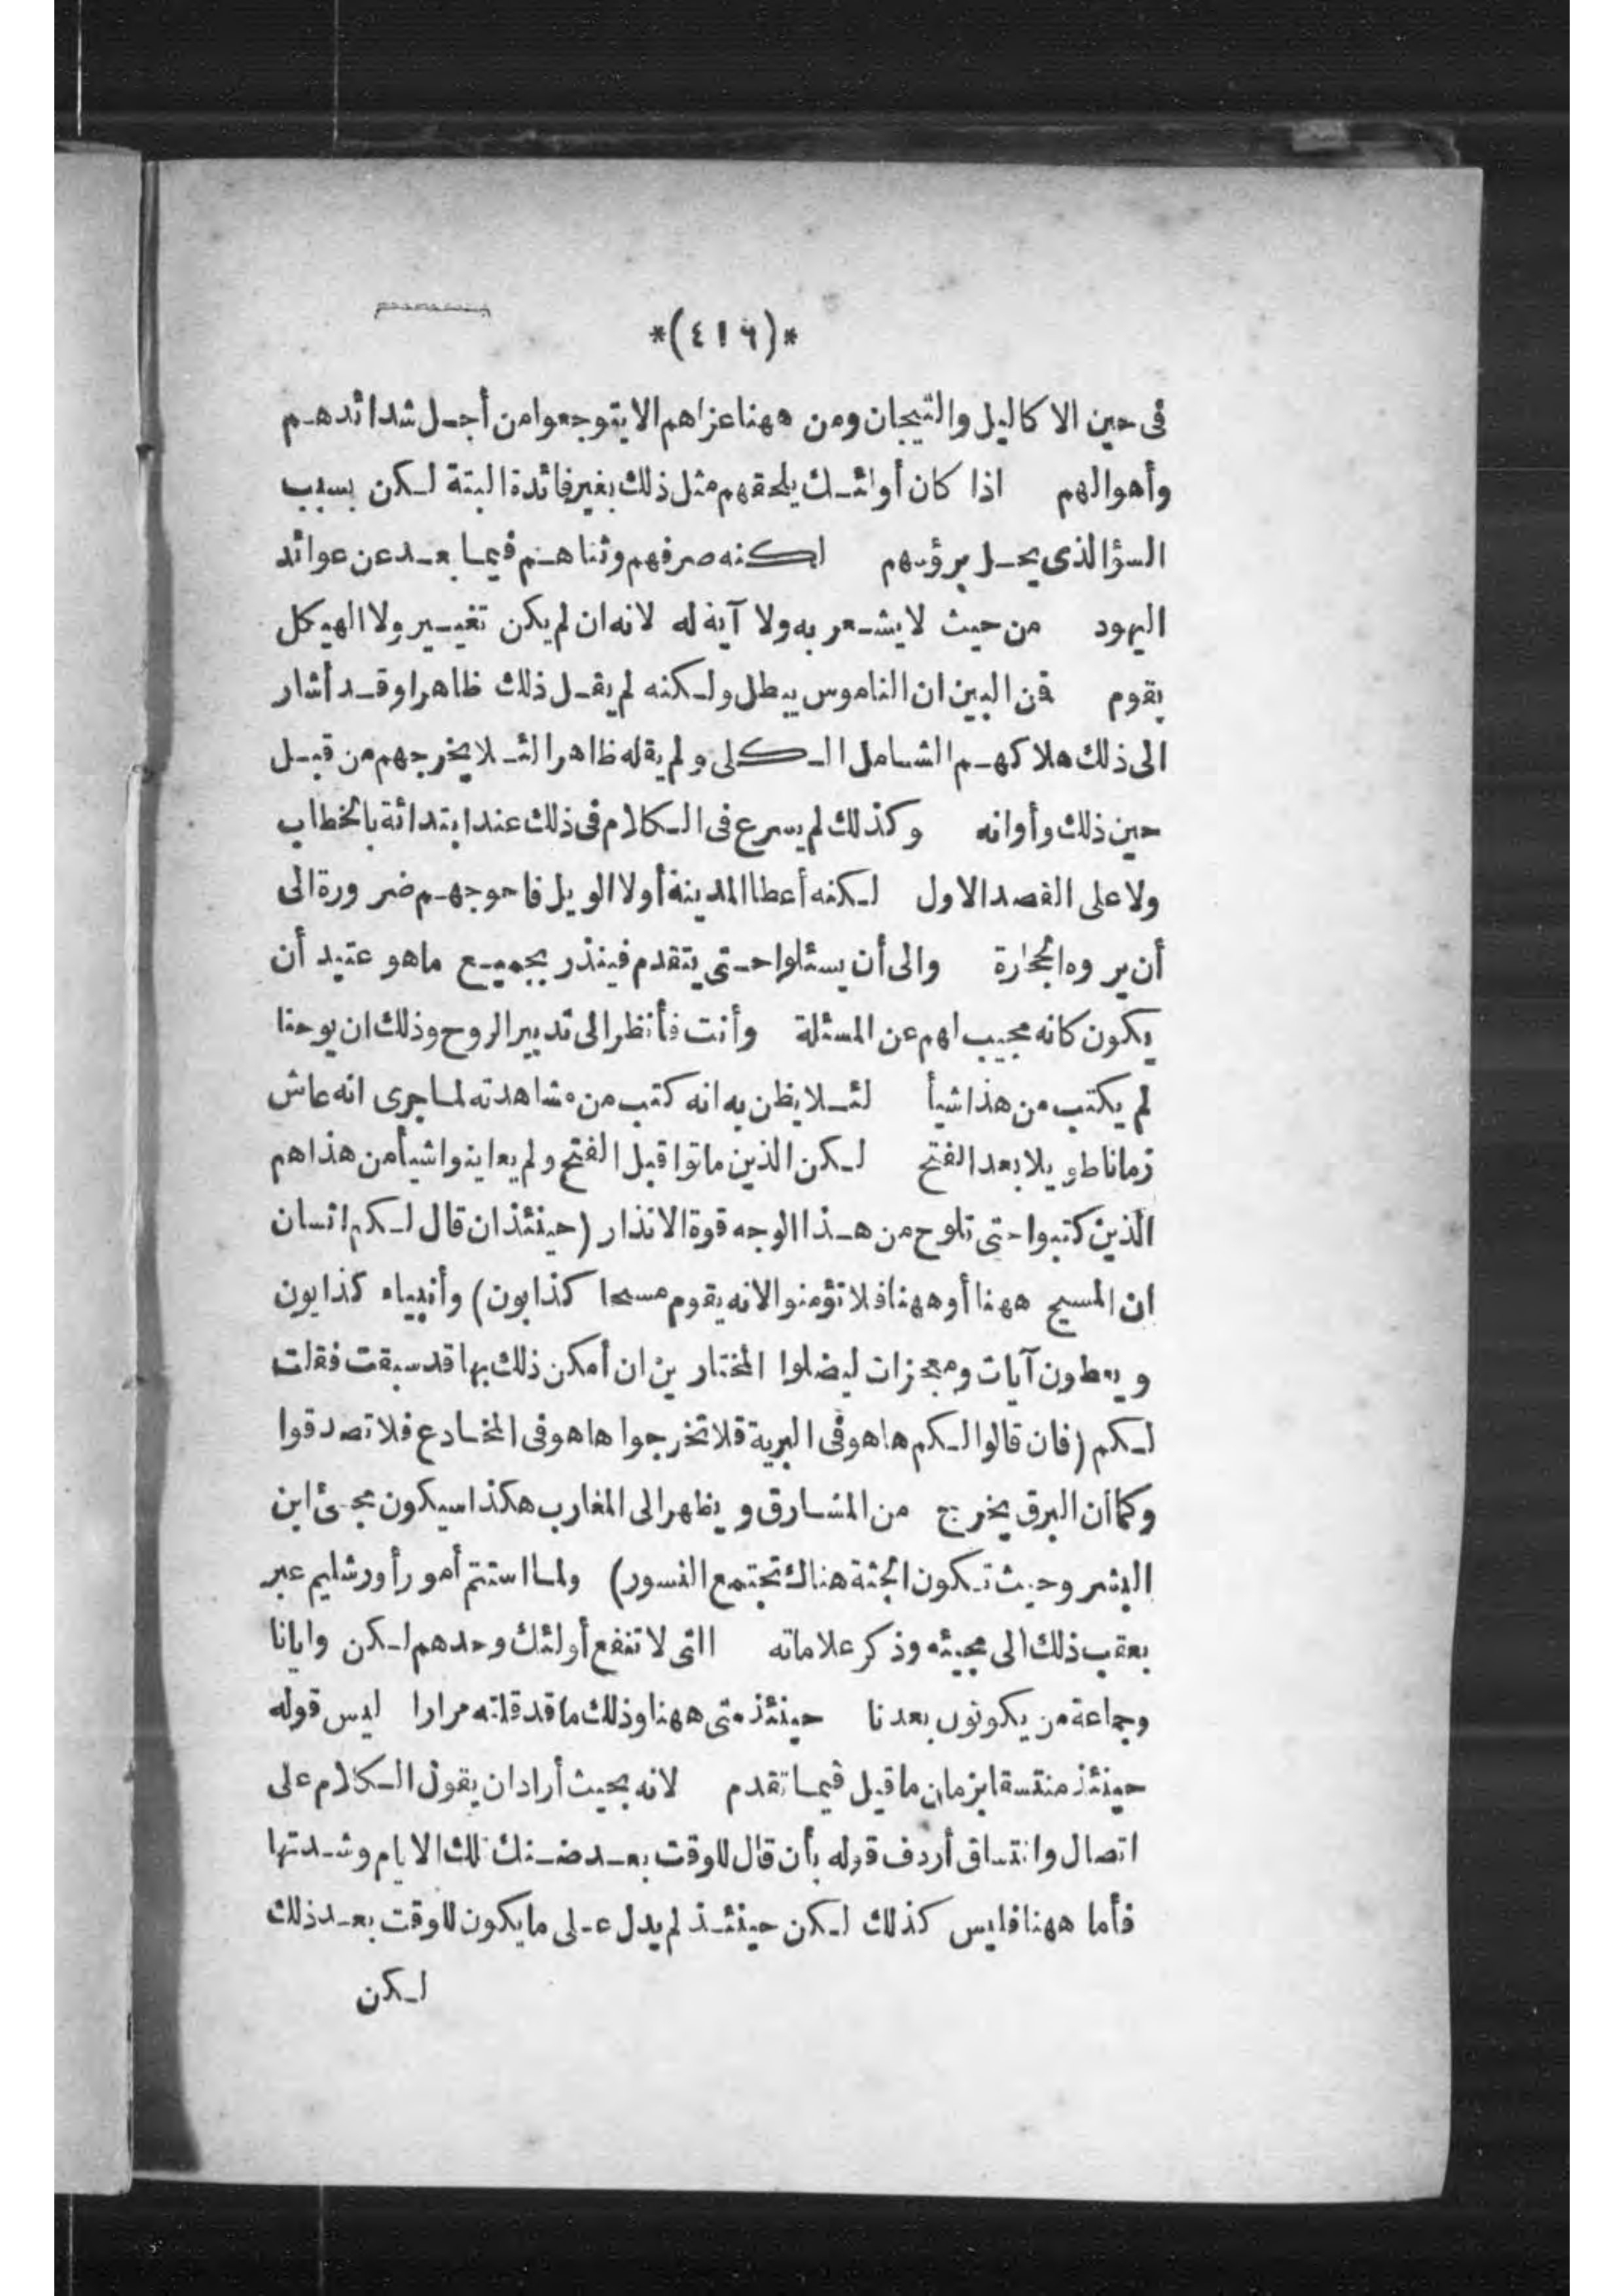 *(٤١٦)*
فى حين الاكاليل والتيجان ومن ههنا عزاهم الا يتوجعوا من أجل شدائدهم
وأهوالهم اذا كان أولئك يلحقهم مثل ذلك بغير فائدة البتة لكن بسبب
السؤ الذى يحل برؤسهم لكنه صرفهم وثناهم فيما بعد عن عوائد
اليهود من حيث لا يشعر به ولا آية له لانه ان لم يكن تغيير ولا الهيكل
يقوم فمن البين ان الناموس يبطل ولكنه لم يقل ذلك ظاهرا وقد أشار
الى ذلك هلاكهم الشامل الكلى ولم يقله ظاهرا لئلا يخرجهم من قبل
حين ذلك وأوانه وكذلك لم يسرع فى الكلام فى ذلك عند ابتدائة بالخطاب
ولا على القصد الاول لكنه أعطا المدينة أولا الويل فاحوجهم ضرورة الى
أن يروه الحجارة والى أن يسئلوا حتى يتقدم فينذر بجميع ماهو عتيد أن
يكون كانه مجيب لهم عن المسئلة وأنت فأنظر الى تدبير الروح وذلك ان يوحنا
لم يكتب من هذا شيأ لئلا يظن به انه كتب من مشاهدته لما جرى انه عاش
زمانا طويلا بعد الفتح لكن الذين ماتوا قبل الفتح ولم يعاينوا شيأ من هذا هم
الذين كتبوا حتى تلوح من هذا الوجه قوة الانذار (حينئذ ان قال لكم انسان
ان المسيح ههنا أو ههنا فلا تؤمنوا لانه يقوم مسحا كذابون) وأنبياء كذابون
ويعطون آيات ومعجزات ليضلوا المختارين ان أمكن ذلك بها قد سبقت فقلت
لكم (فان قالوا لكم ها هو فى البرية فلا تخرجوا ها هو فى المخادع فلا تصدقوا
وكما أن البرق يخرج من المشارق ويظهر الى المغارب هكذا سيكون مجئ ابن
البشر وحيث تكون الجثة هناك تجتمع النسور) ولما استتم أمور أورشليم عبر
بعقب ذلك الى مجيئه وذكر علاماته التى لا تنفع أولئك وحدهم لكن وايانا
وجماعة من يكونون بعدنا حينئذ متى ههنا وذلك ما قد قلته مرارا ليس قوله
حينئذ منتسقا بزمان ما قيل فيما تقدم لانه بحيث أراد ان يقول الكلام على
اتصال وانتساق أردف قوله بأن قال للوقت بعد ضنك تلك الايام وشدتها
فأما ههنا فليس كذلك لكن حينئذ لم يدل على ما يكون للوقت بعد ذلك
لكن